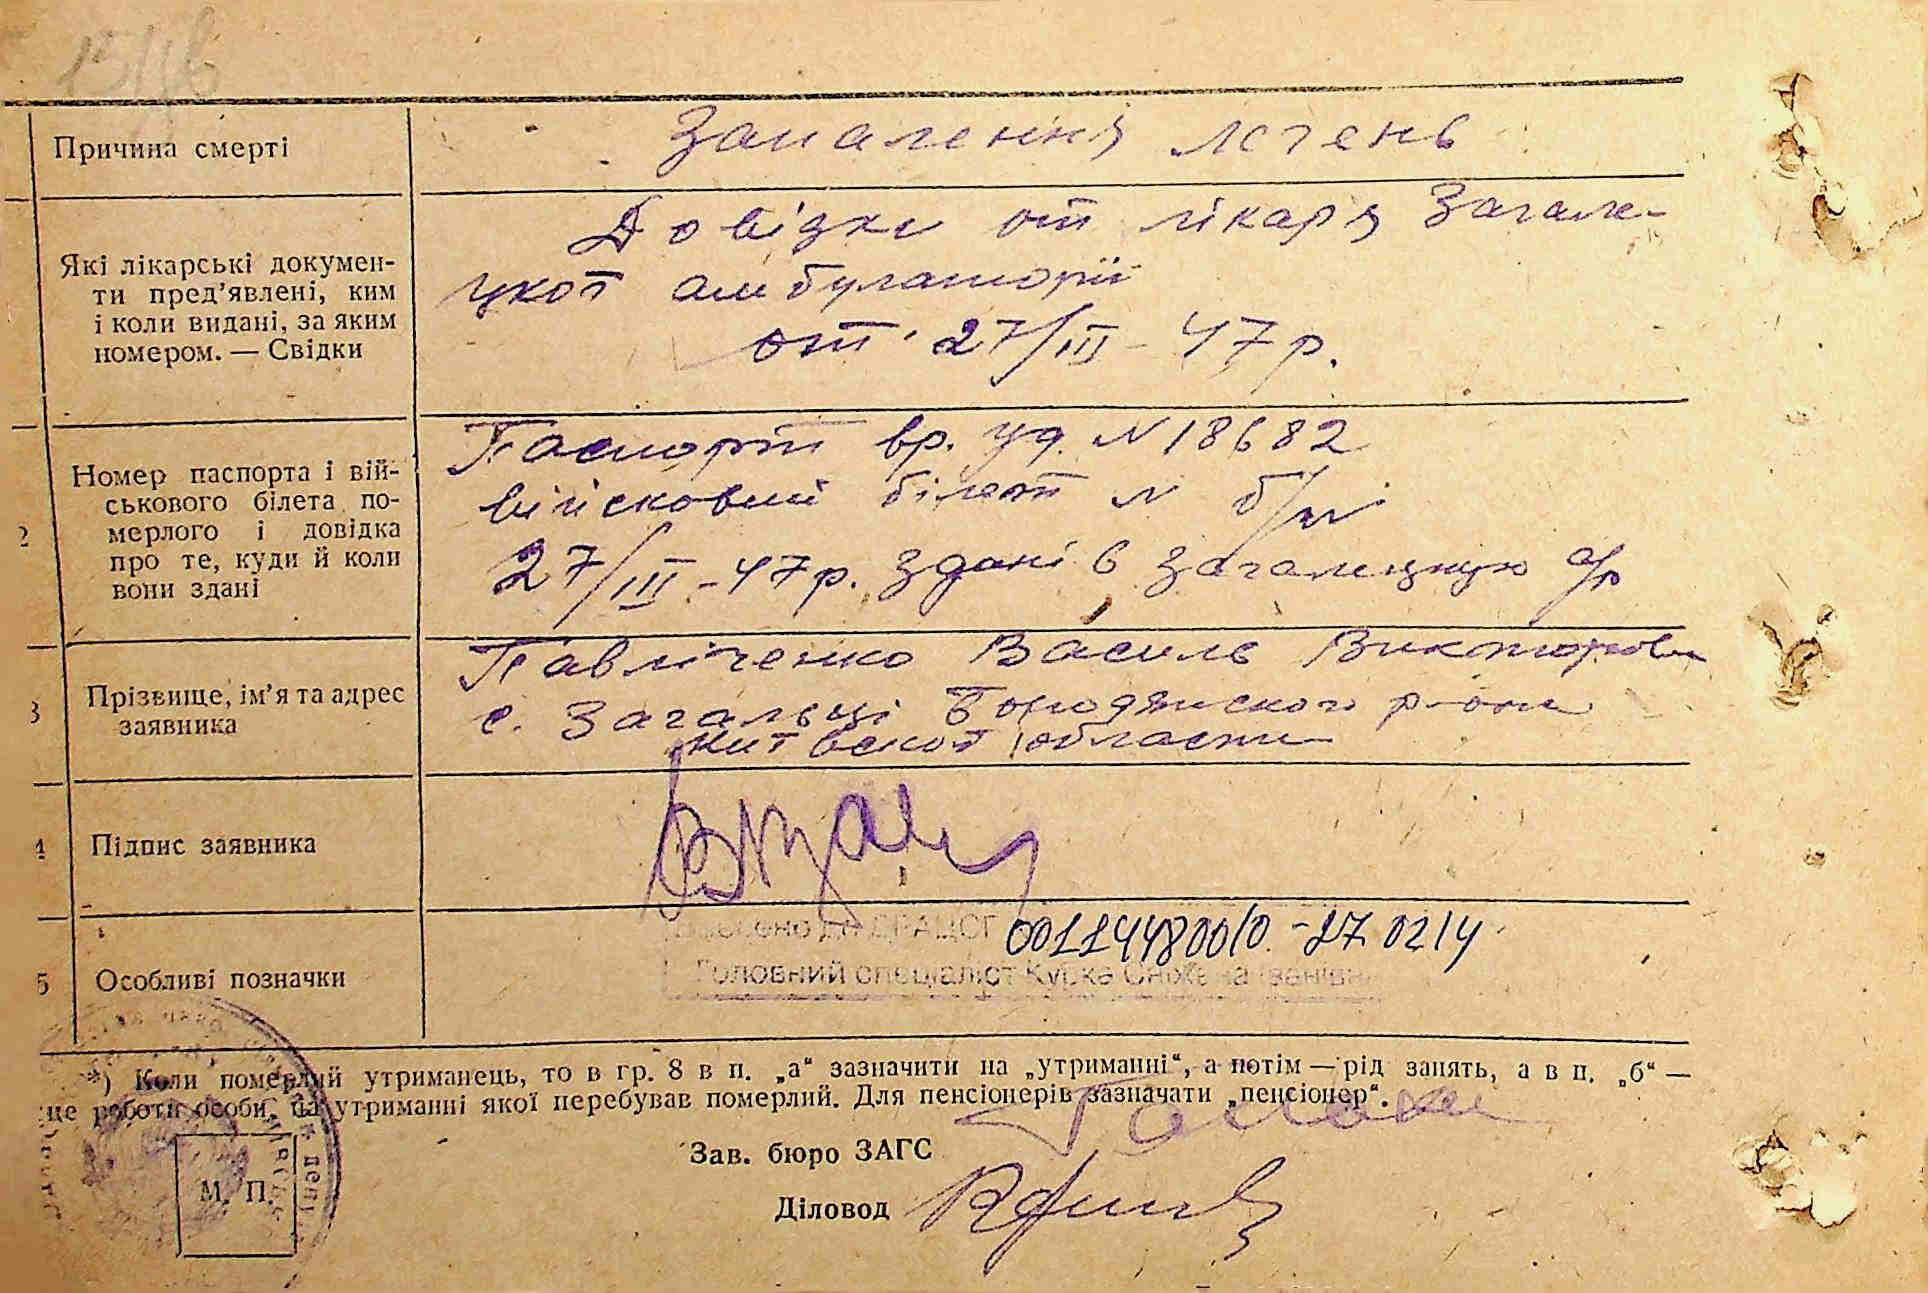 Причина смерті
Запалення легень
Які лікарські докумен-
ти пред’явлені, ким
і коли видані, за яким
номером. — Свідки
Довізки от лікаря Загале-
цкої амбулаторії
от 27/III - 47 р.
2
Номер паспорта і вій-
ськового білета по-
мерлого і довідка
про те, куди й коли
вони здані
Паспорт вр. уд. N 18682
війсковий білет N б/н
27/III - 47 р. здані в Загалецкую а/р
3
Прізвище, ім’я та адрес
заявника
Павліченко Василь Викторови
с. Загальці Бородянского р-она
Київской области
4
Підпис заявника
5
Особливі позначки
ДРАЦСГ 00114480010 - 27.0214
Головний спеціаліст Курка Сніжана Іванівна
*) Коли померлий утриманець, то в гр. 8 в п. „а“ зазначити на „утриманні“, а потім — рід занять, а в п. „б“ —
це роботи особи, на утриманні якої перебував померлий. Для пенсіонерів зазначати „пенсіонер“.
Зав. бюро ЗАГС
М. П.
Діловод